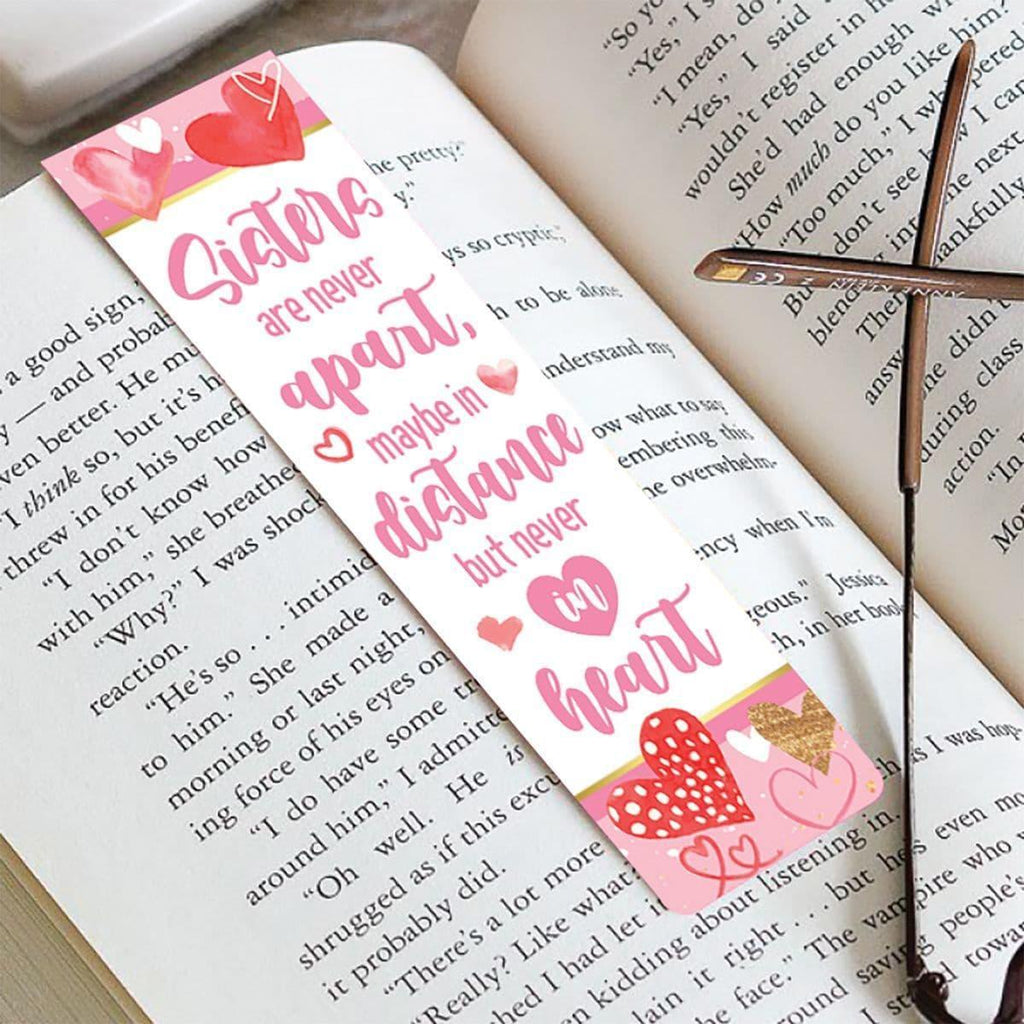 Sisters
are never
apart,
maybe in
distance
but never
in
heart
he pretty."
y."
ys so cryptic,"
h to be alone
nderstand my
ow what to say
embering this
he overwhelm-
ency when I'm
geous." Jessica
h, in her book
a good sign,
y — and probab
ven better. He mu
"I think so, but it's h
threw in for his benef
"I don't know how
with him," she breathe
"Why?" I was shock
reaction.
"He's so . . . intimid
to him." She made a
morning or last night,
ing force of his eyes on
"I do have some tr
around him," I admitte
"Oh well. He is
shrugged as if this excu
it probably did.
"There's a lot more
"Really? Like what
hed I had let i
en kidding about listening in.
lain it right . . . but he's even mo
he face." The vampire who w
round saving people's
d towar
s I was hop-
"So yo
"Yes," I s
"I mean, do
"Yes," I said
wouldn't register in h
She'd had enough
"How much do you like him
"Too much," I whispered
don't see how I can
the next
hankfully
But
blend
Then
answ
she didn't
during class
action.
"In
Mor
ANNA-KARIN
CE